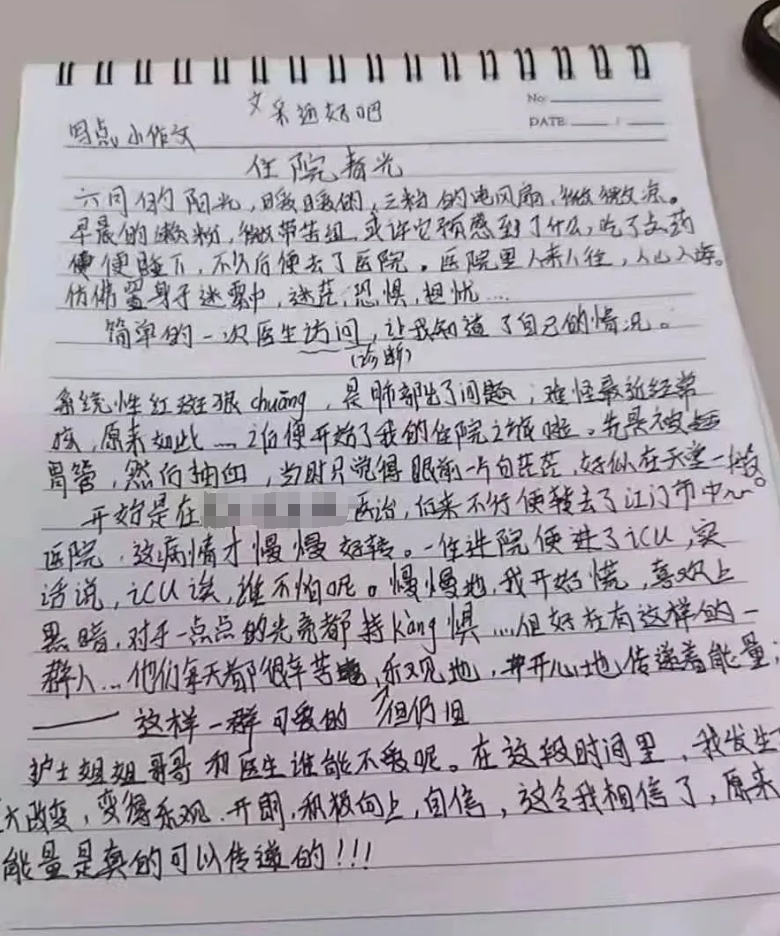 文采还好吧
No:
DATE / /
四点小作文
住院春光
六月的阳光,暖暖的,三粉的电风扇,微微凉。
早晨的嫩粉,微带苦组,或许它预感到了什么,吃了之药
便便睡下,不久后便去了医院。医院里人来人往,人山人海。
仿佛置身于迷雾中,迷茫,恐惧,担忧...
简单的一次医生访问,让我知道了自己的情况。
(诊断)
系统性红斑狠chuāng,是肺部出了问题;难怪最近经常
咳,原来如此....之后便开始了我的住院之旅啦。先是被插
胃管,然后抽血,当时只觉得眼前一片白茫茫,好似在天堂一样。
开始是在 医治,后来不行便转去了江门市中心
医院,这病情才慢慢好转。一住进院便进了icu,实
话说,icu诶,谁不怕呢。慢慢地,我开始慌,喜欢上
黑暗,对于一点点的光亮都持kàng惧....但好在有这样的一
群人...他们每天都很辛苦,乐观地,开心地传递着能量;
——这样一群可爱的 但仍旧
护士姐姐哥哥和医生谁能不爱呢。在这段时间里,我发生
大改变,变得乐观、开朗,积极向上,自信,这令我相信了,原来
能量是真的可以传递的!!!